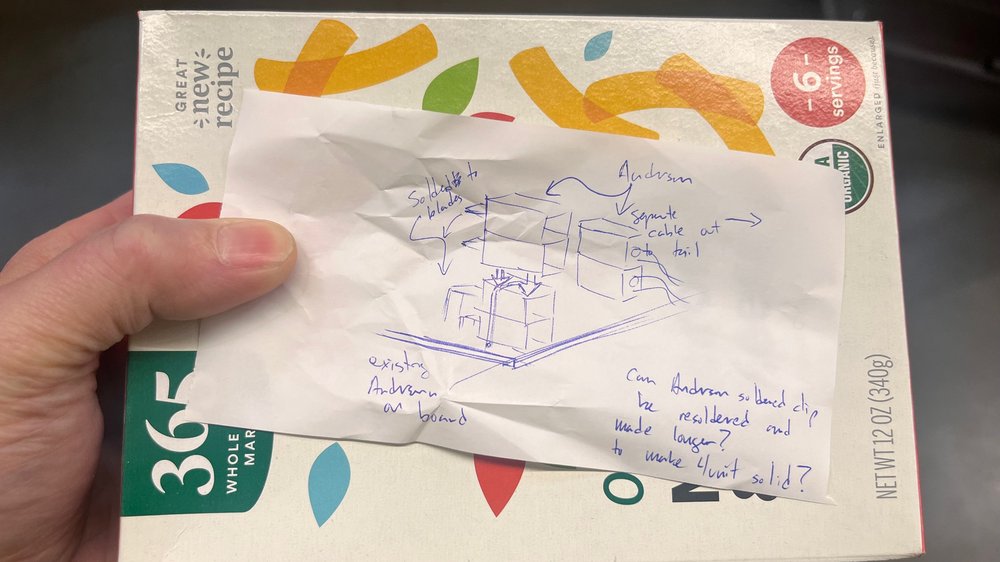 GREAT
new
recipe
-6-
servings
ENLARGED
ORGANIC
Anderson
blades
separate
cable out
to tail
existing
Anderson
on board
Can Anderson soldered clip
be resoldered and
made longer?
to make 4 unit solid?
365
WHOLE
MAR
NET WT 12 OZ (340g)